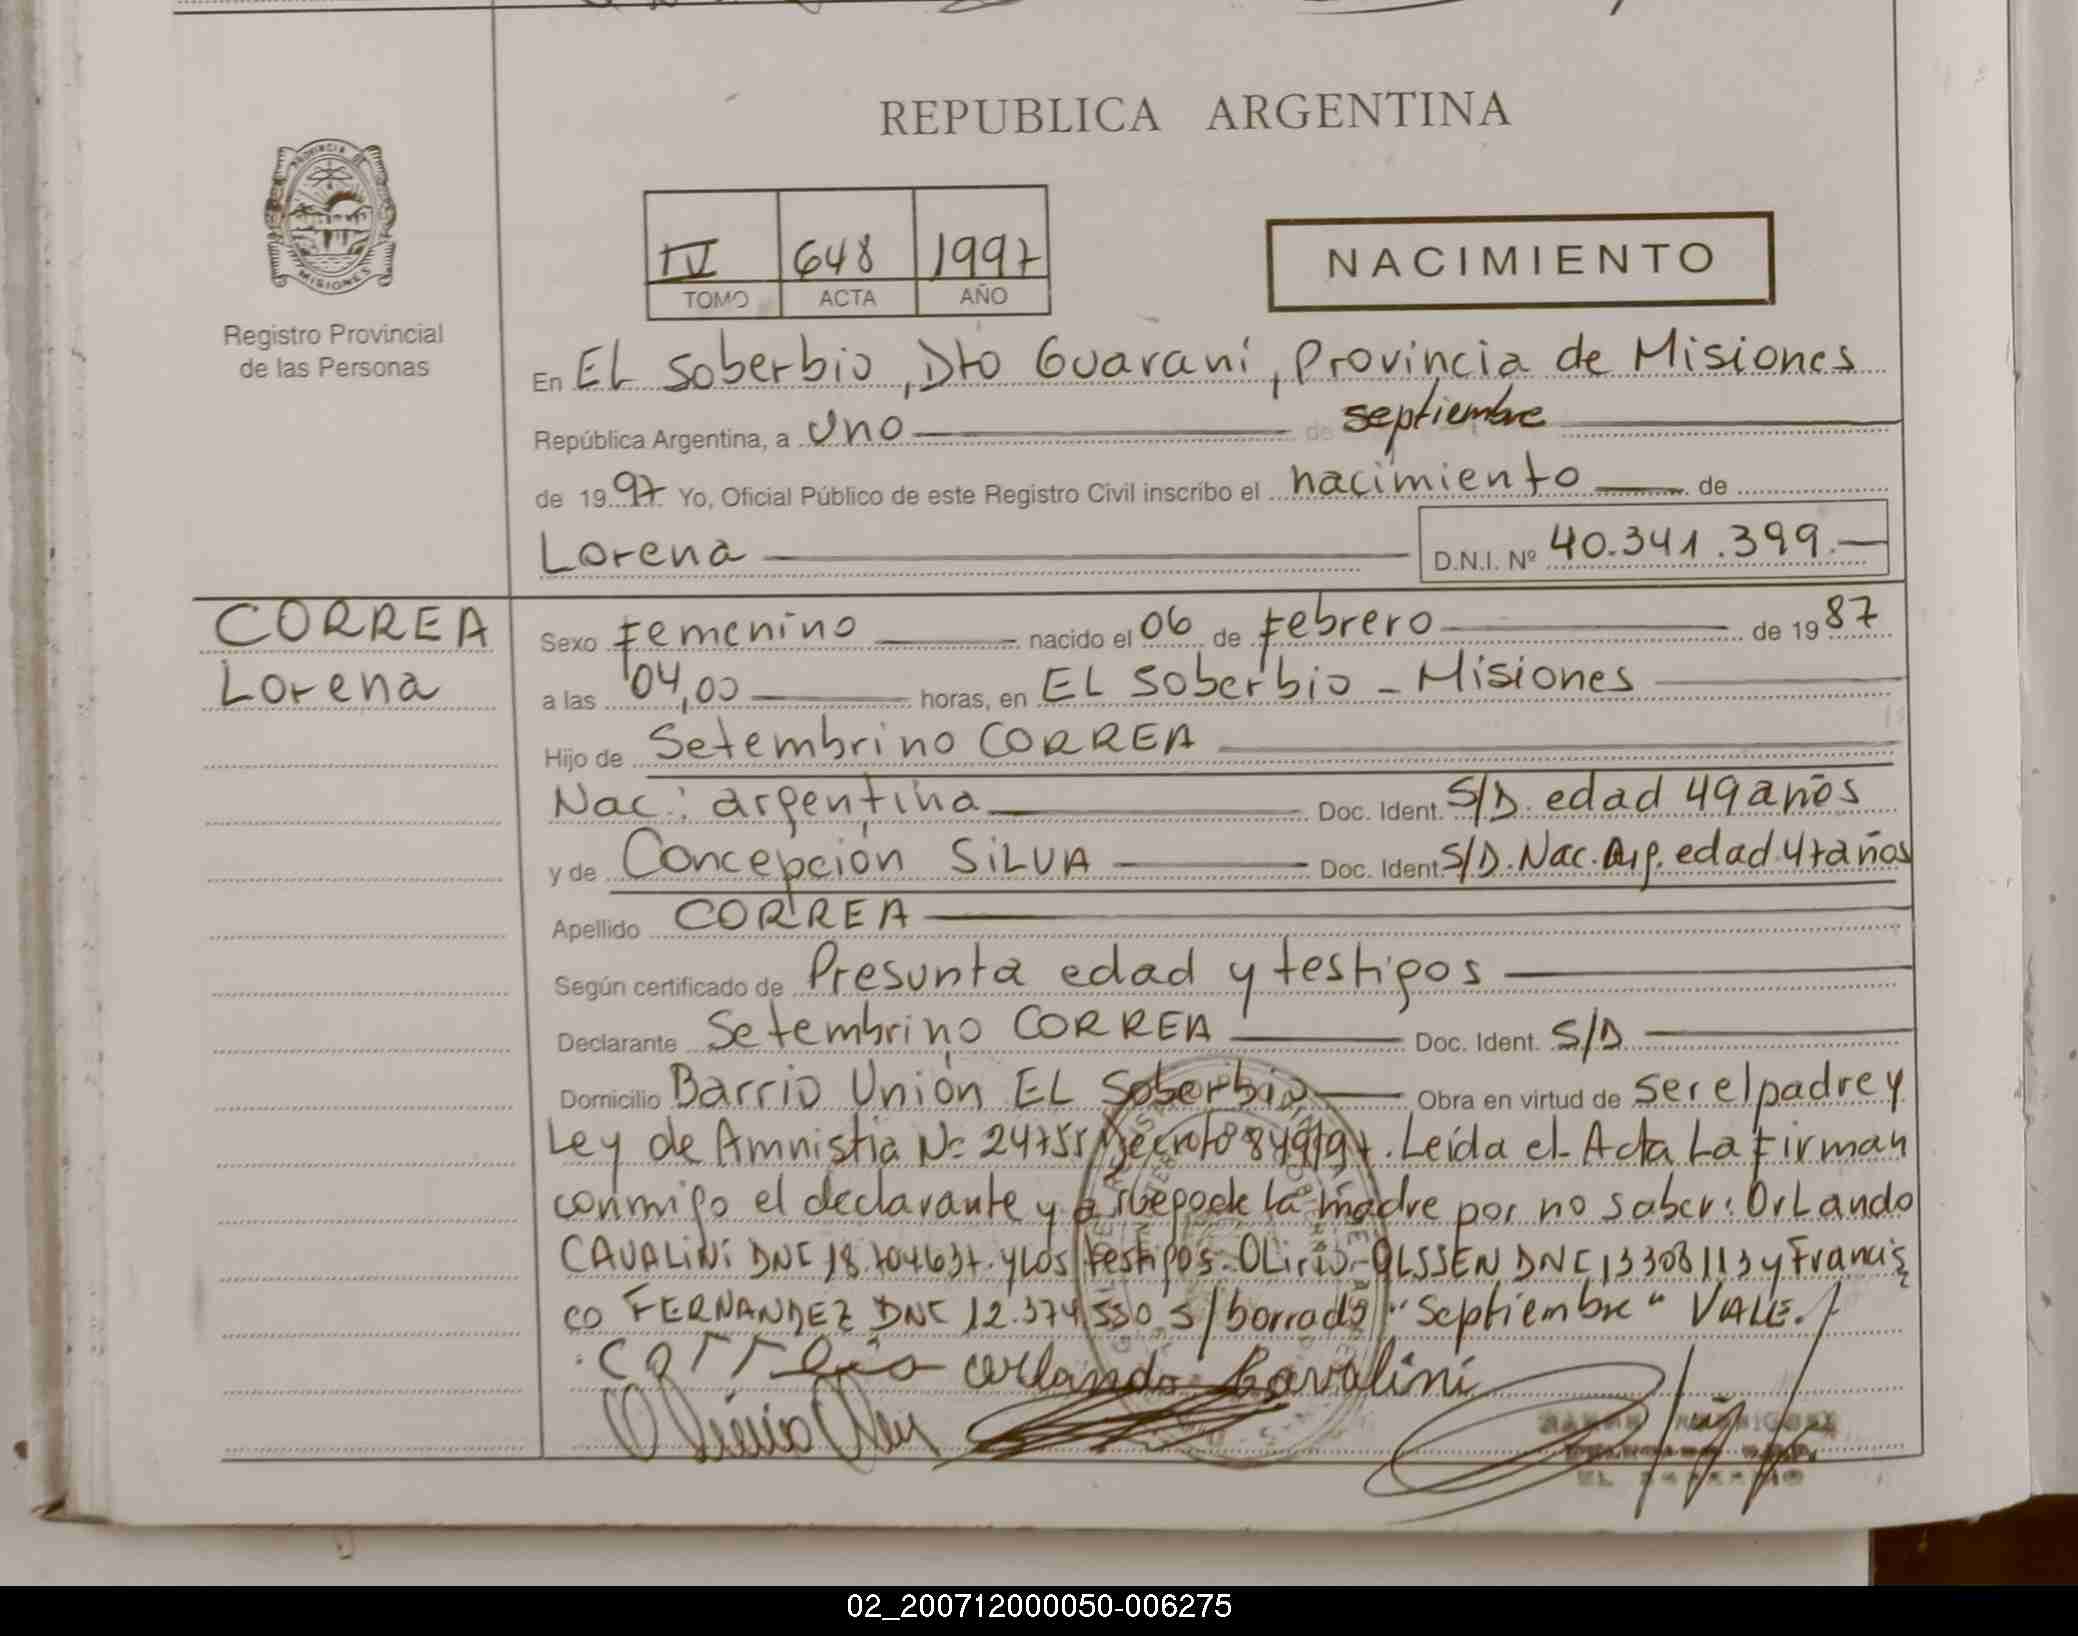 REPUBLICA ARGENTINA
PROVINCIA DE
MISIONES
Registro Provincial
de las Personas
IV 648 1997
TOMO ACTA AÑO
NACIMIENTO
En EL Soberbio, Dto Guaraní, Provincia de Misiones
República Argentina, a uno de septiembre
de 1997 Yo, Oficial Público de este Registro Civil inscribo el nacimiento de
Lorena D.N.I. Nº 40.341.399.-
CORREA
Lorena
Sexo Femenino nacido el 06 de Febrero de 1987
a las 04,00 horas, en EL Soberbio - Misiones
Hijo de Setembrino CORREA
Nac: argentina Doc. Ident. S/D. edad 49 años
y de Concepción SiLVA Doc. Ident S/D. Nac. Arg. edad 47 años
Apellido CORREA
Según certificado de Presunta edad y testigos
Declarante Setembrino CORREA Doc. Ident. S/D
Domicilio Barrio Unión EL Soberbio Obra en virtud de ser el padre y
Ley de Amnistia Nº 24755 Decreto 849/97. Leída el Acta La Firman
conmigo el declarante y a ruego de la madre por no saber: OrLando
CAVALiNi DNI 18.704637. y Los testigos: OLirio OLSSEN DNI 13308113 y Francis
co FERNANDEZ DNI 12.374550 S/borrado "Septiembre" VALE.
Correa orlando Cavalini
EL SOBERBIO
02_200712000050-006275